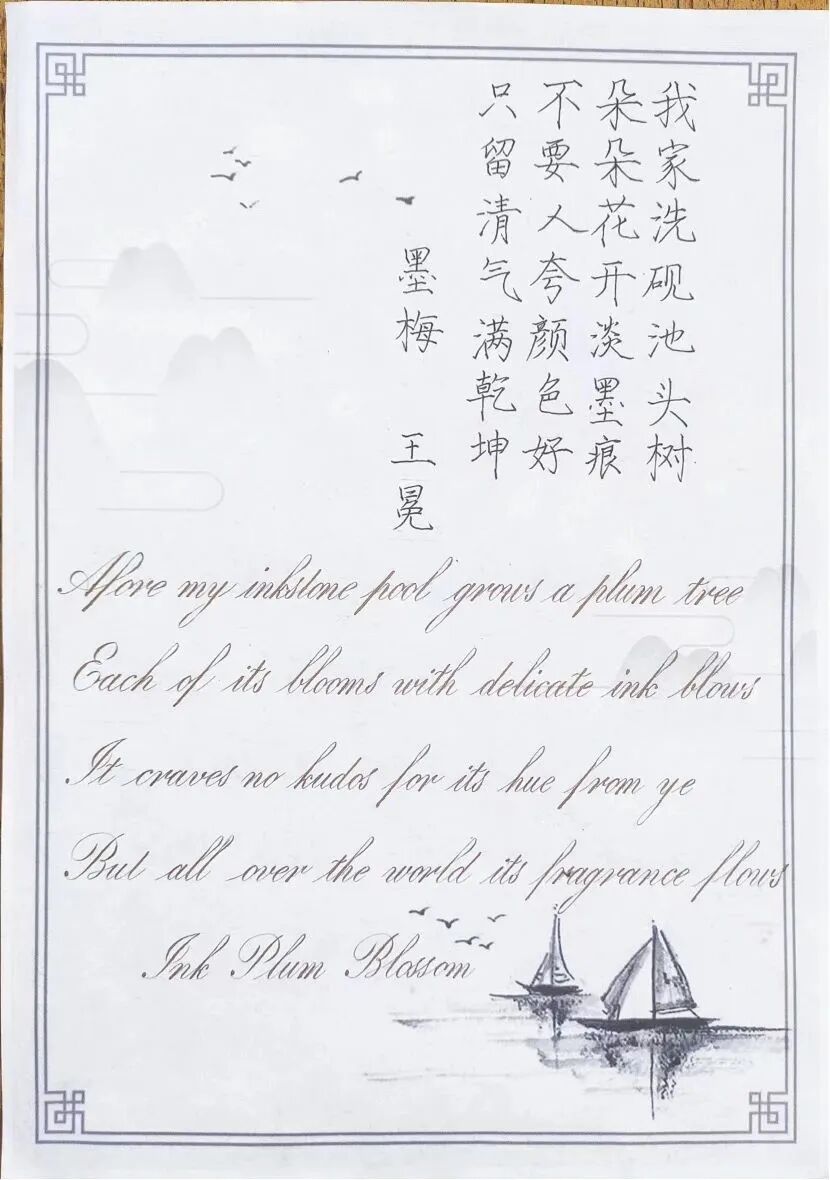 我家洗砚池头树
朵朵花开淡墨痕
不要人夸颜色好
只留清气满乾坤
墨梅 王冕
Afore my inkstone pool grows a plum tree
Each of its blooms with delicate ink blows
It craves no kudos for its hue from ye
But all over the world its fragrance flows
Ink Plum Blossom